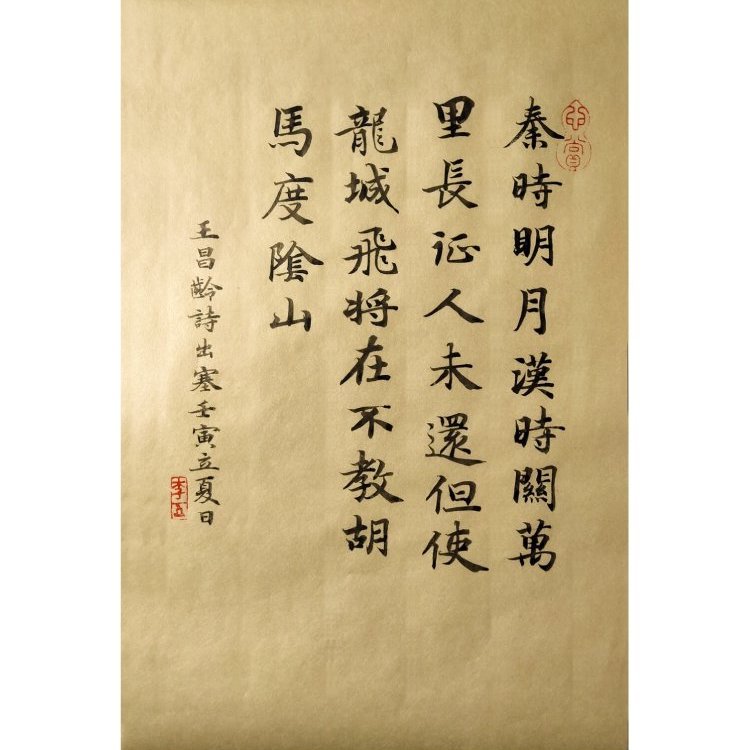 秦時明月漢時關萬
里長证人未還但使
龍城飛将在不教胡
馬度陰山
王昌齡詩出塞壬寅立夏日